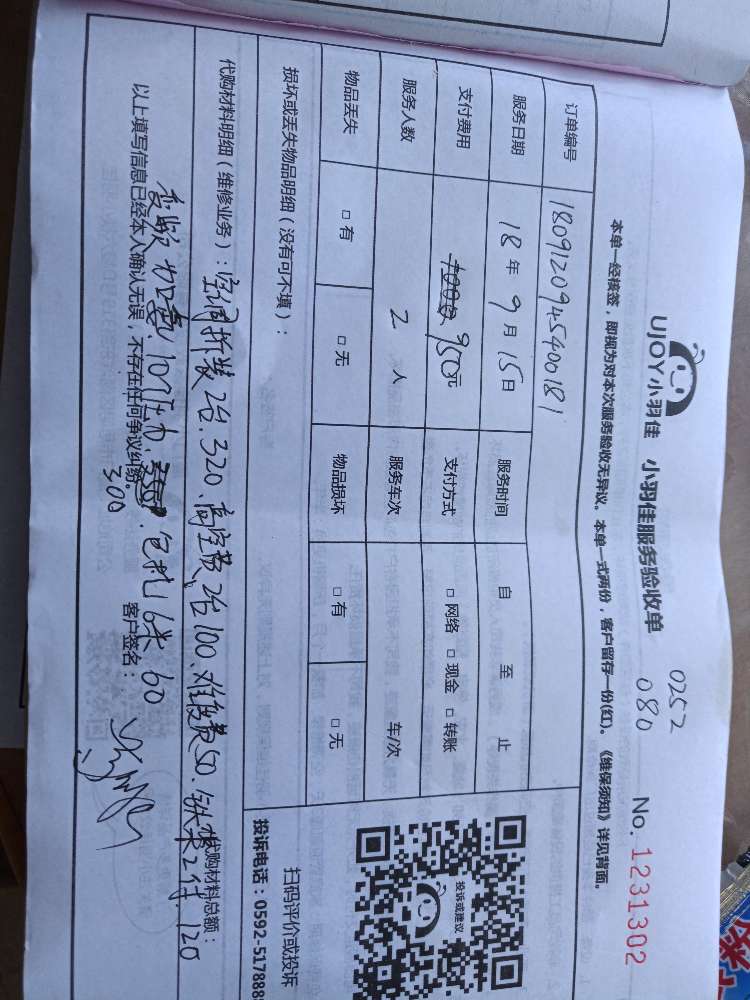 UJOY小羽佳 小羽佳服务验收单
0252
080
No. 1231302
本单一经核签，即视为对本次服务验收无异议。本单一式两份，客户留存一份(红)。《维保须知》详见背面。
订单编号 1809120945400181
服务日期 18年9月15日 服务时间 自 至 止
支付费用 950元 支付方式 □网络 □现金 □转账
服务人数 2人 服务车次 车/次
物品丢失 □有 □无 物品损坏 □有 □无
损坏或丢失物品明细（没有可不填）：
投诉或建议
扫码评价或投诉
投诉电话：0592-517888
代购材料明细（维修业务）：空调拆装2台.320、高空费2台100、难度费50.铁架2付.120
代购材料总额：
变频加氟10个压力、300.包扎6米60
以上填写信息已经本人确认无误，不存在任何争议纠纷。 客户签名：